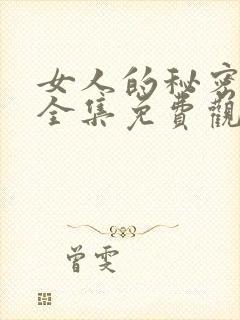 女人的秘密
全集免費觀
曾雯